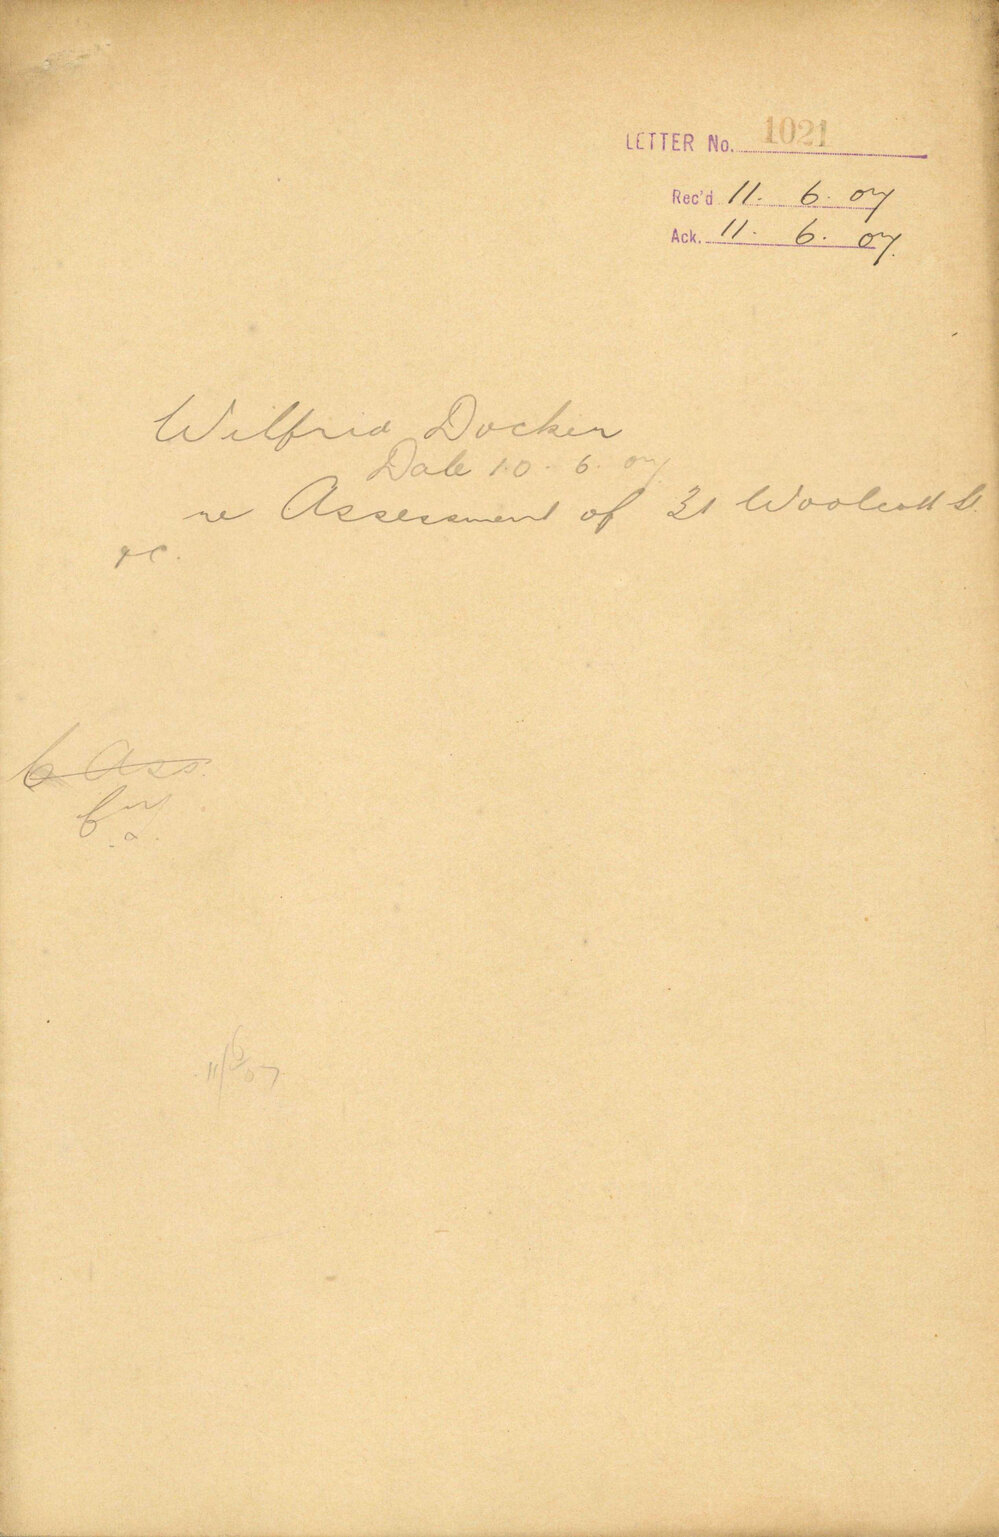 LETTER No. 1021
Rec'd 11. 6. 07
Ack. 11. 6. 07.
Wilfrid Docker
Date 10. 6. 07
re Assessment of 31 Woolcott St.
&c.
Ass.
11/6/07